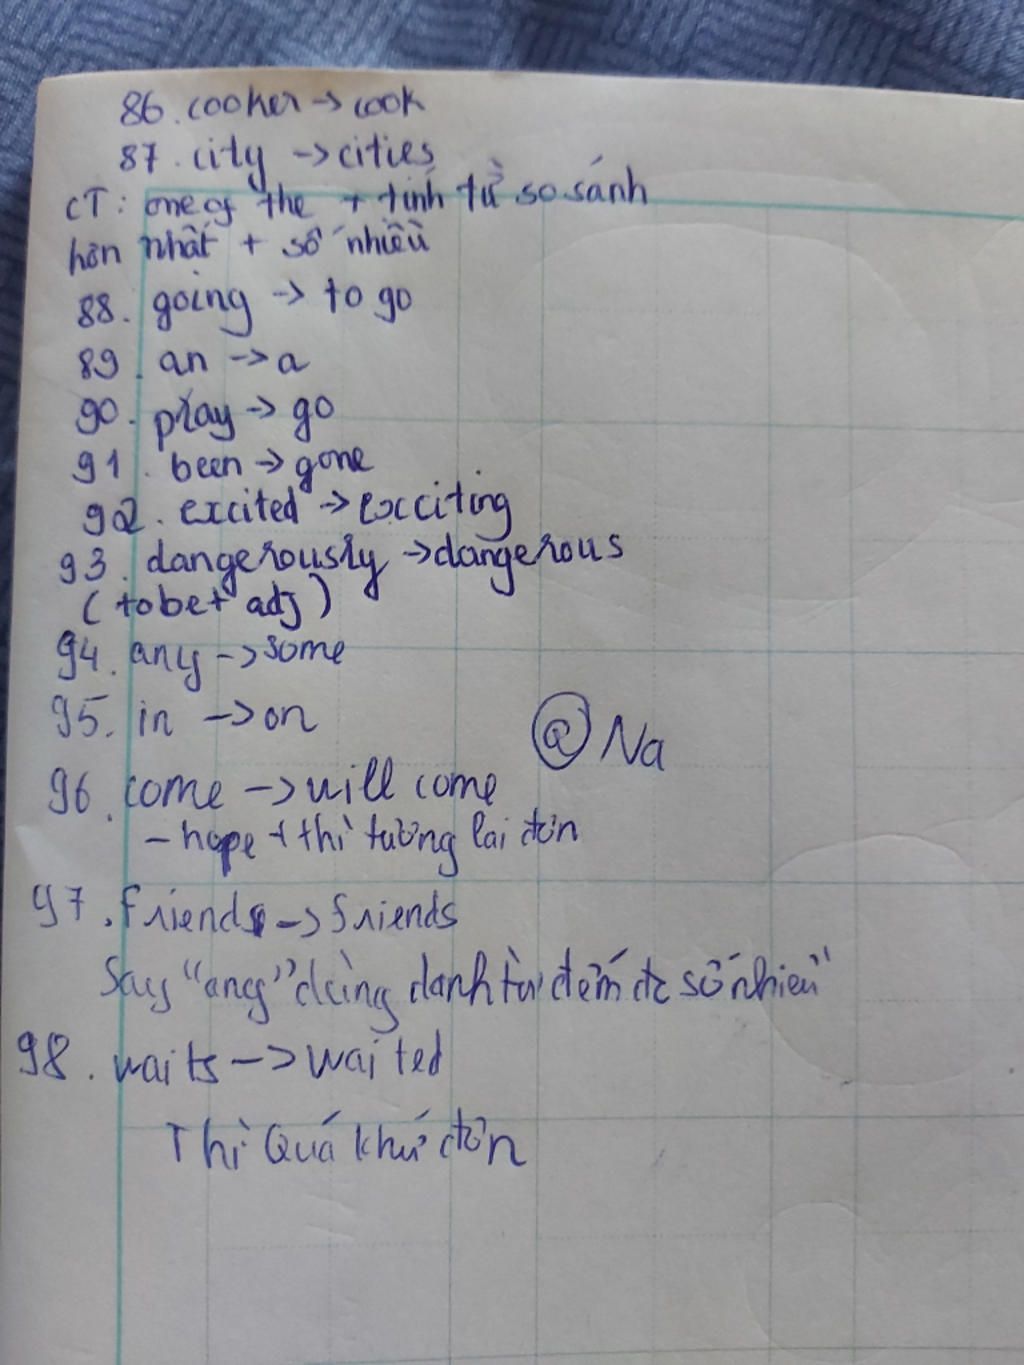 86. cooker → cook
87. city → cities
CT: one of the + tính từ so sánh
hơn nhất + số nhiều
88. going → to go
89. an → a
90. play → go
91. been → gone
92. excited → excciting
93. dangerously → dangerous
(tobe + adj)
94. any → some
95. in → on
@ Na
96. come → will come
- hope + thì tương lai đơn
97. friends → friends
Say "any" dùng danh từ đếm đc số nhiều
98. waits → waited
Thì Quá khứ đơn